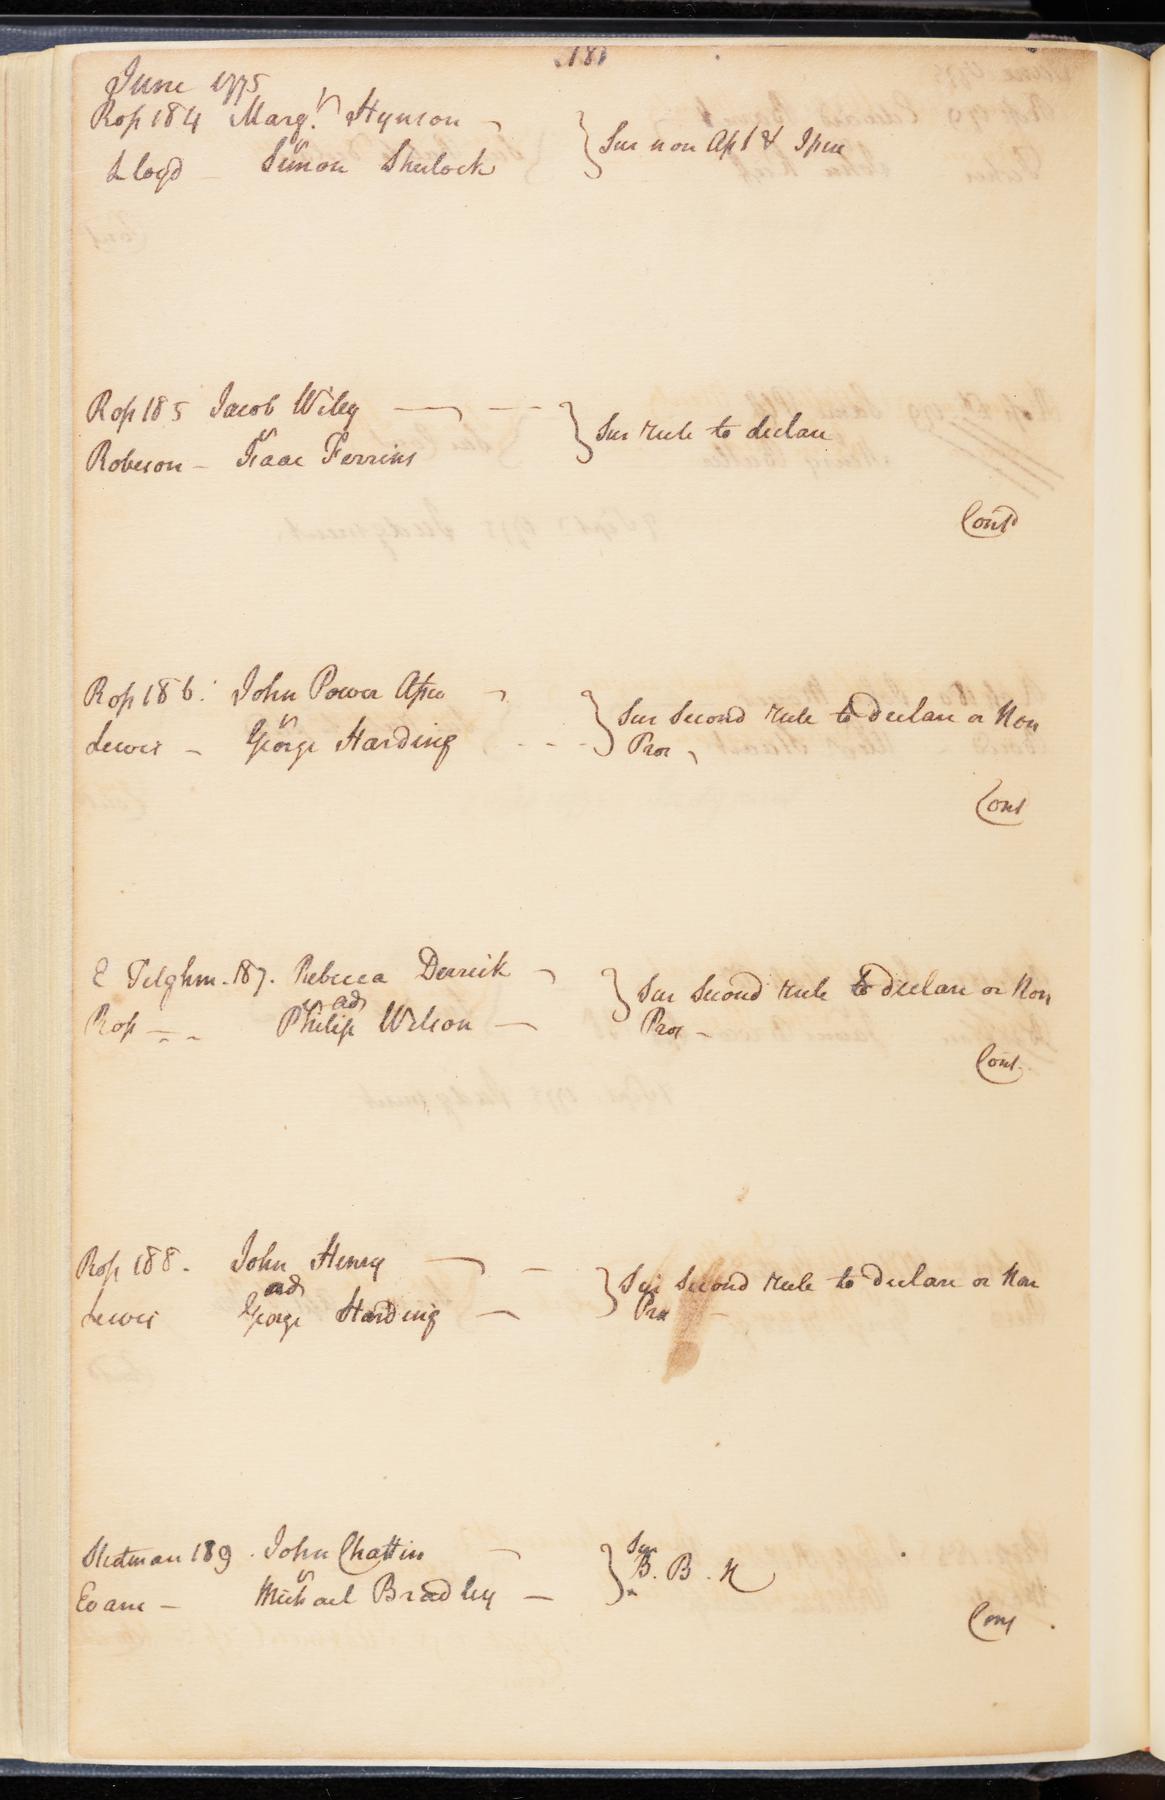 181
June 1775
Ross 184 Marg.t Hynson
vs
Lloyd Simon Sherlock
Sur non Ass't & Issue
Ross 185 Jacob Wiley
vs
Roberson Isaac Ferrins
Sur rule to declare
Cont'd
Ross 186 John Power Assee
vs
Lewis George Harding
Sur second rule to declare or Non
Pros
Cont
E Tilghm. 187. Rebecca Derrick
vs ads
Ross Philip Wilson
Sur second rule to declare or Non
Pros
Cont
Ross 188. John Henry
ads
Lewis George Harding
Sur second rule to declare or Non
Pros
Stedman 189. John Chattin
vs
Evans Michael Bradley
Sur
B. B. N
Cont